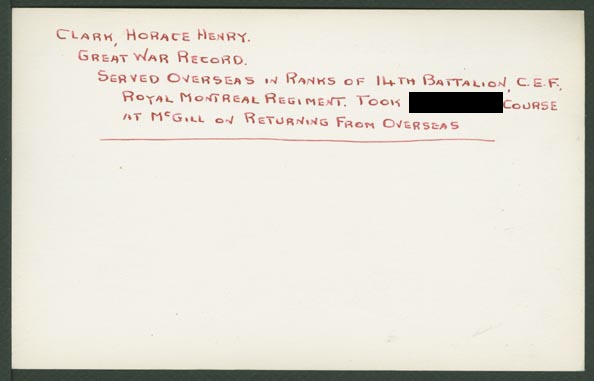 CLARK, HORACE HENRY.
GREAT WAR RECORD.
SERVED OVERSEAS IN RANKS OF 14TH BATTALION, C.E.F.,
ROYAL MONTREAL REGIMENT. TOOK COURSE
AT McGILL ON RETURNING FROM OVERSEAS